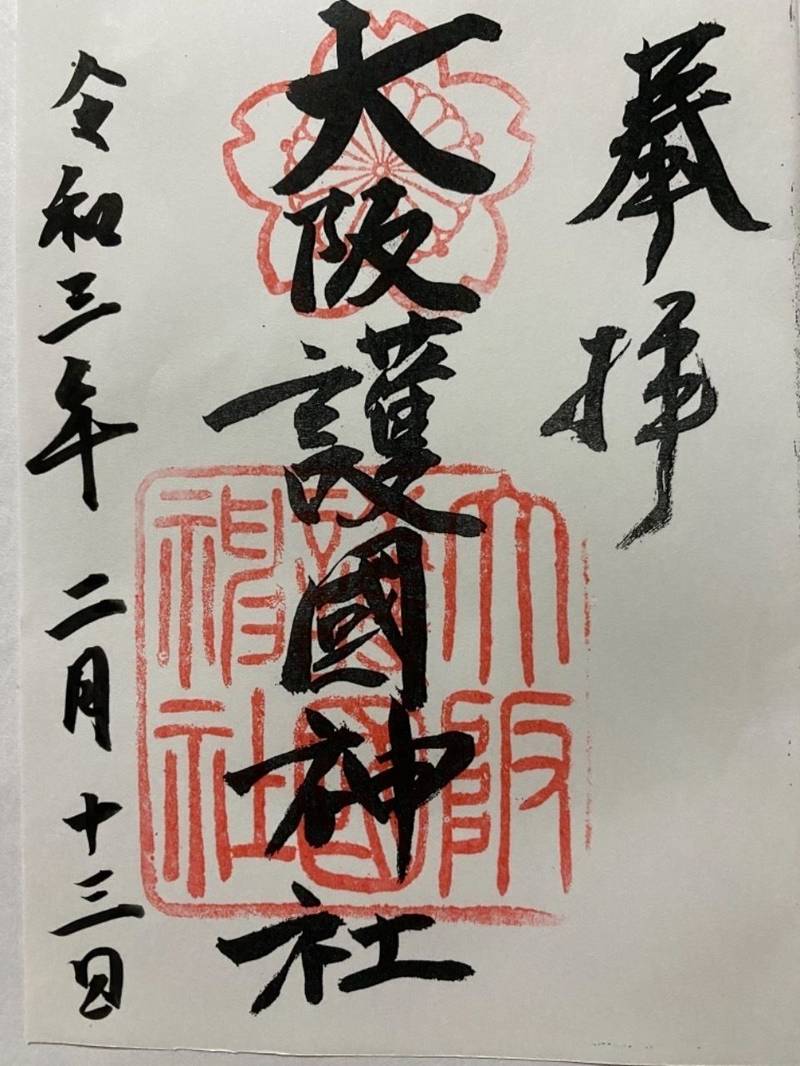 奉拝
大阪護國神社
大阪護國神社
令和三年 二月 十三日